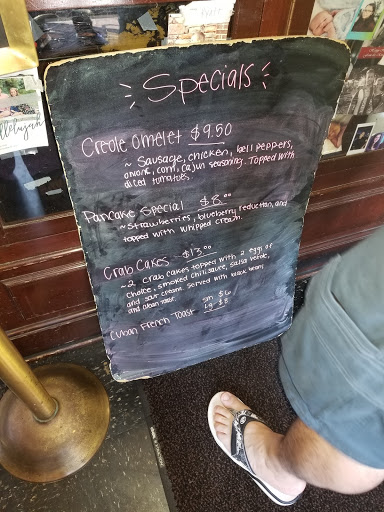 Specials
Creole Omelet $9.50
~ Sausage, chicken, bell peppers,
onions, corn, cajun seasoning. Topped with
diced tomatoes.
Pancake Special $8.00
~ Strawberries, blueberry reduction, and
topped with whipped cream.
Crab Cakes $13.00
~ 2 crab cakes topped with 2 eggs of
choice, smoked chili sauce, salsa verde,
and sour cream. Served with black beans
and cuban toast.
Cuban French Toast sm $6
Lg $8